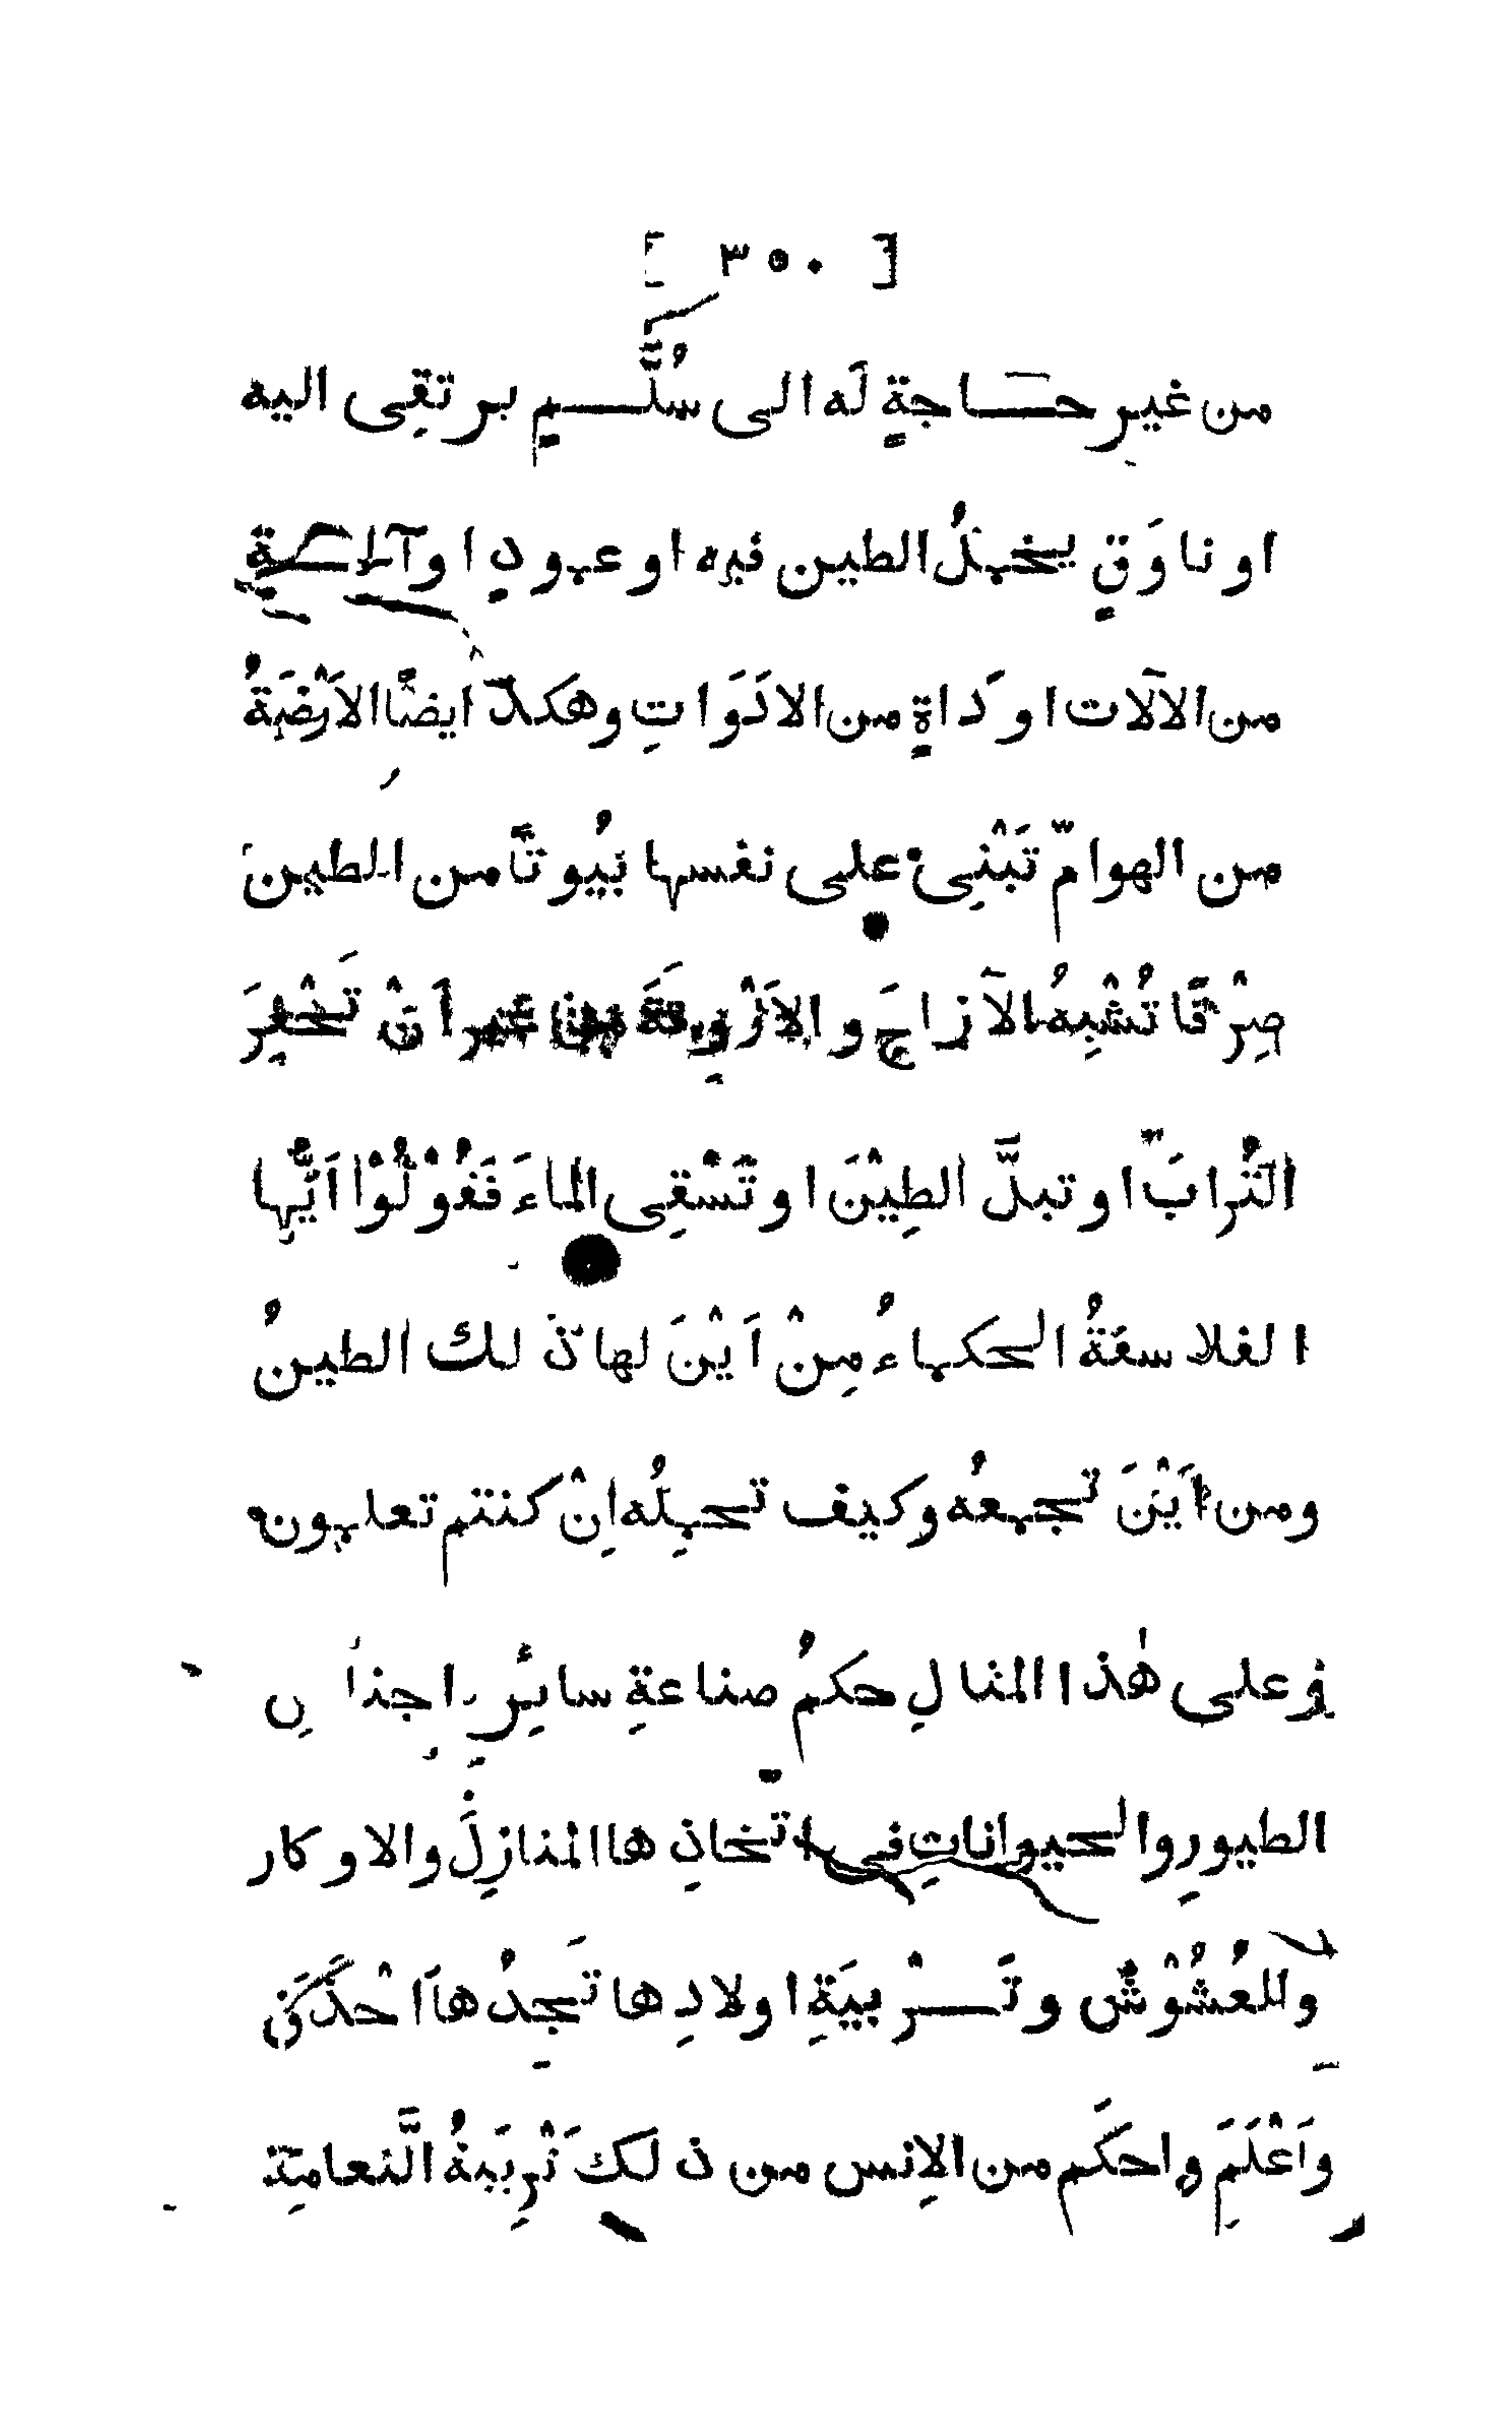 [ ٣٥٠ ]
من غير حَـاجةٍ لَه الى سُلَّـمٍ يرتقِى اليه
او ناوَقٍ يحملُ الطين فيه او عمودٍ او آلـةٍ
من الآلات او دَاةٍ من الادَوَاتِ وهكذا ايضًا الاَرْضَةُ
من الهوامّ تَبْنِىْ على نفسها بُيُوتًا من الطين
صِرْفًا تُشْبِهُ الآزاجَ والاَرْوِقَةَ من غير اَنْ تَحْفِرَ
التُّرابَ او تبلَّ الطِيْنَ او تَسْقِى الماءَ فَقُوْلُوْا اَيُّها
الفلاسفةُ الحكماءُ مِنْ اَيْنَ لها ذَلك الطينُ
ومن اَيْنَ تجمعُه وكيف تحمِلُه اِنْ كنتم تعلمون
وعلى هٰذا المثالِ حكمُ صناعةِ سائِرِ اجناسِ
الطيورِ والحيواناتِ فى اتخاذِ ها المنازِلَ والاوكار
والعُشُوْش وتَـرْبيَةِ اولادِها تَجِدُها اَحْذَقَ
واَعْلَمَ واحكَم من الاِنس من ذلك تَرْبِيَةُ النَّعامة